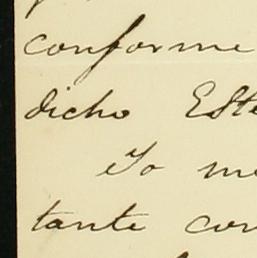 conforme
dicho Este
Yo me
tante con